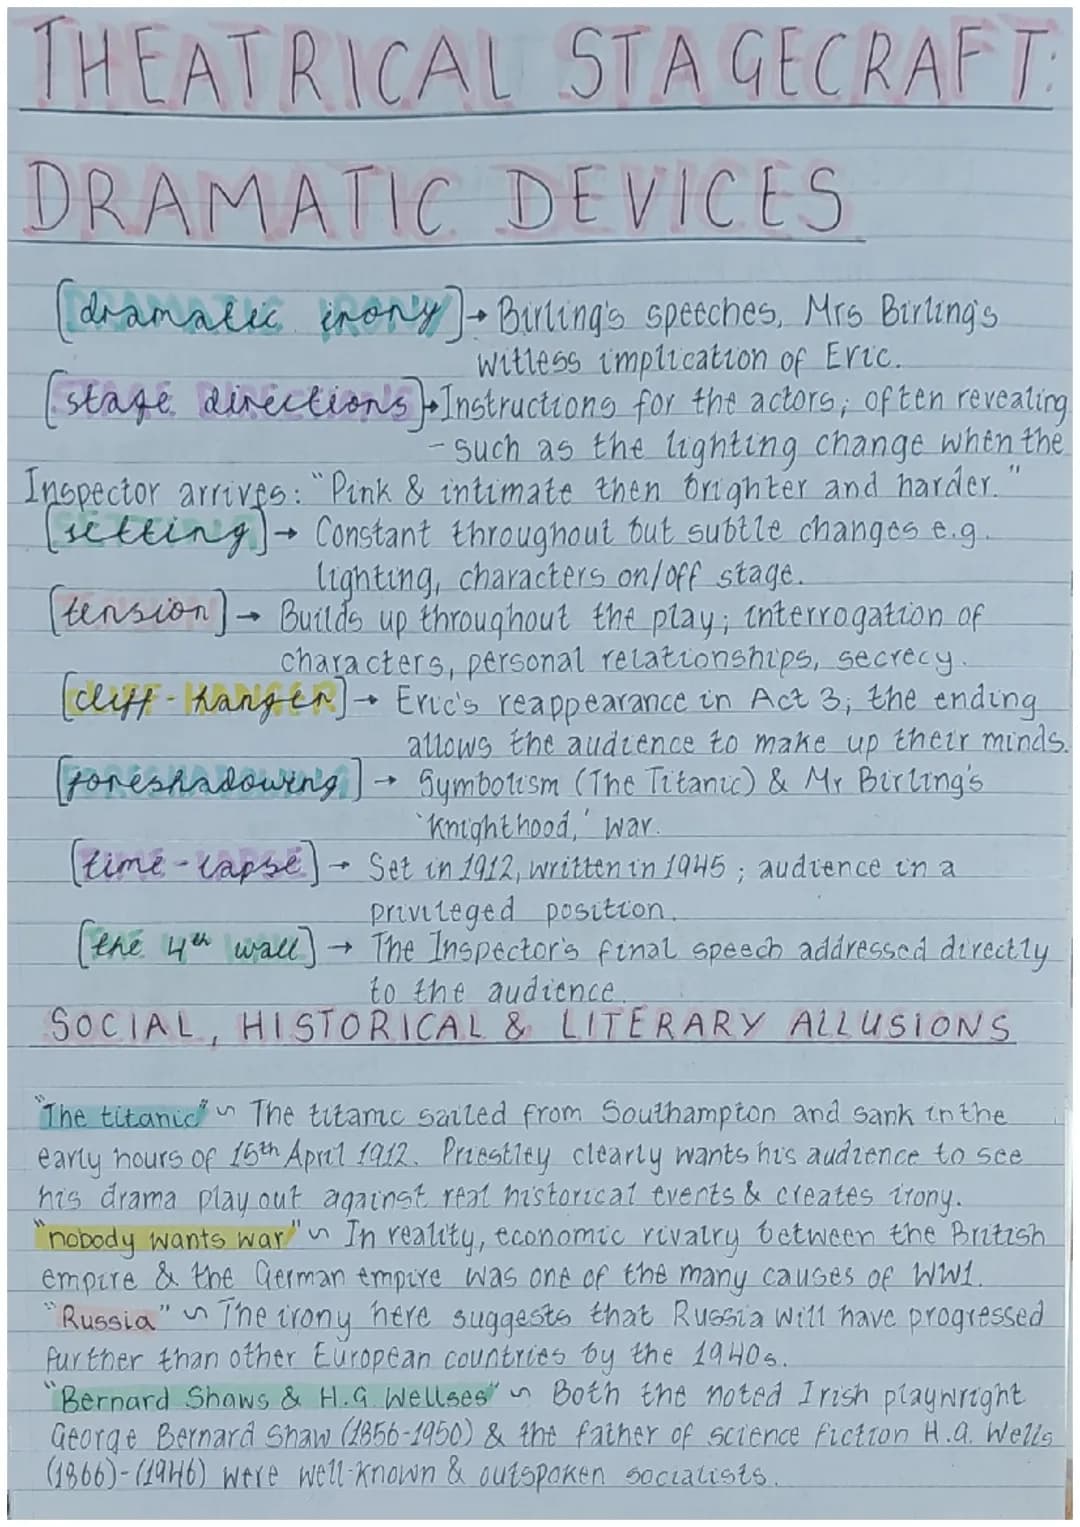 THEATRICAL STAGECRAFT:
DRAMATIC DEVICES
[dramatic irony] → Birling's speeches, Mrs Birling's
witless implication of Eric.
[stage directions] → Instructions for the actors; often revealing
- such as the lighting change when the
Inspector arrives: "Pink & intimate then brighter and harder."
[setting] → Constant throughout but subtle changes e.g.
lighting, characters on/off stage.
[tension] → Builds up throughout the play; interrogation of
characters, personal relationships, secrecy.
[cliff-hanger] → Eric's reappearance in Act 3; the ending
allows the audience to make up their minds.
[foreshadowing] → Symbolism (The Titanic) & Mr Birling's
'Knighthood,' war.
[time-lapse] → Set in 1912, written in 1945; audience in a
privileged position.
[the 4th wall] → The Inspector's final speech addressed directly
to the audience.
SOCIAL, HISTORICAL & LITERARY ALLUSIONS
"The titanic" ~ The titanic sailed from Southampton and sank in the
early hours of 15th April 1912. Priestley clearly wants his audience to see
his drama play out against real historical events & creates irony.
"nobody wants war" ~ In reality, economic rivalry between the British
empire & the German empire was one of the many causes of WW1.
"Russia" ~ The irony here suggests that Russia will have progressed
further than other European countries by the 1940s.
"Bernard Shaws & H.G Wellses" ~ Both the noted Irish playwright
George Bernard Shaw (1856-1950) & the father of science fiction H.G. Wells
(1866)-(1946) were well-known & outspoken socialists.